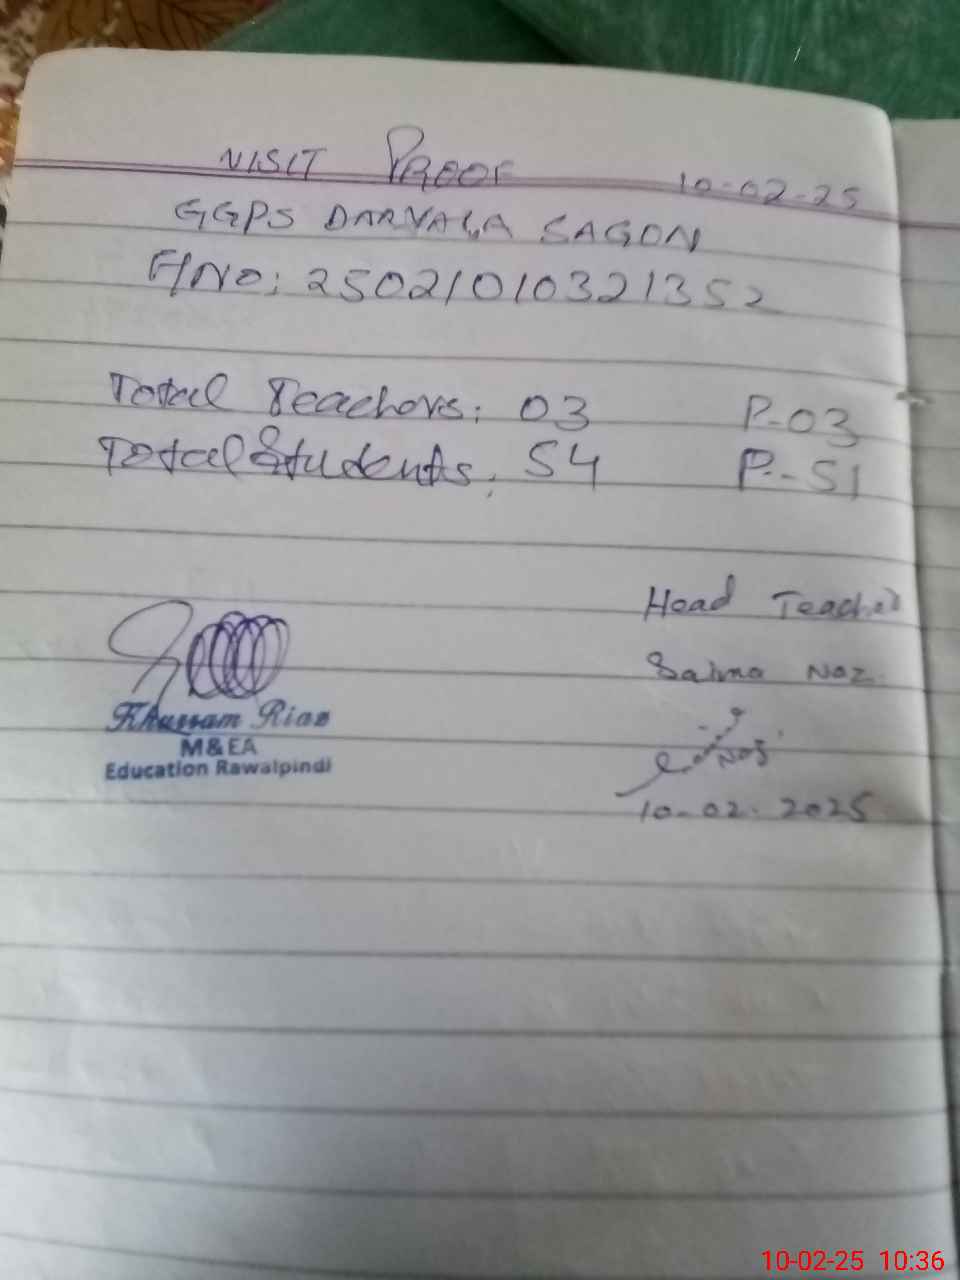 VISIT PROOF 10-02-25
GGPS DARYALA SAGON
F/NO: 25021010321352
Total Teachers: 03 P-03
Total Students: 54 P-51
Head Teacher
Saima Naz
Khurram Riaz
M&EA
Education Rawalpindi
10-02-2025
10-02-25 10:36